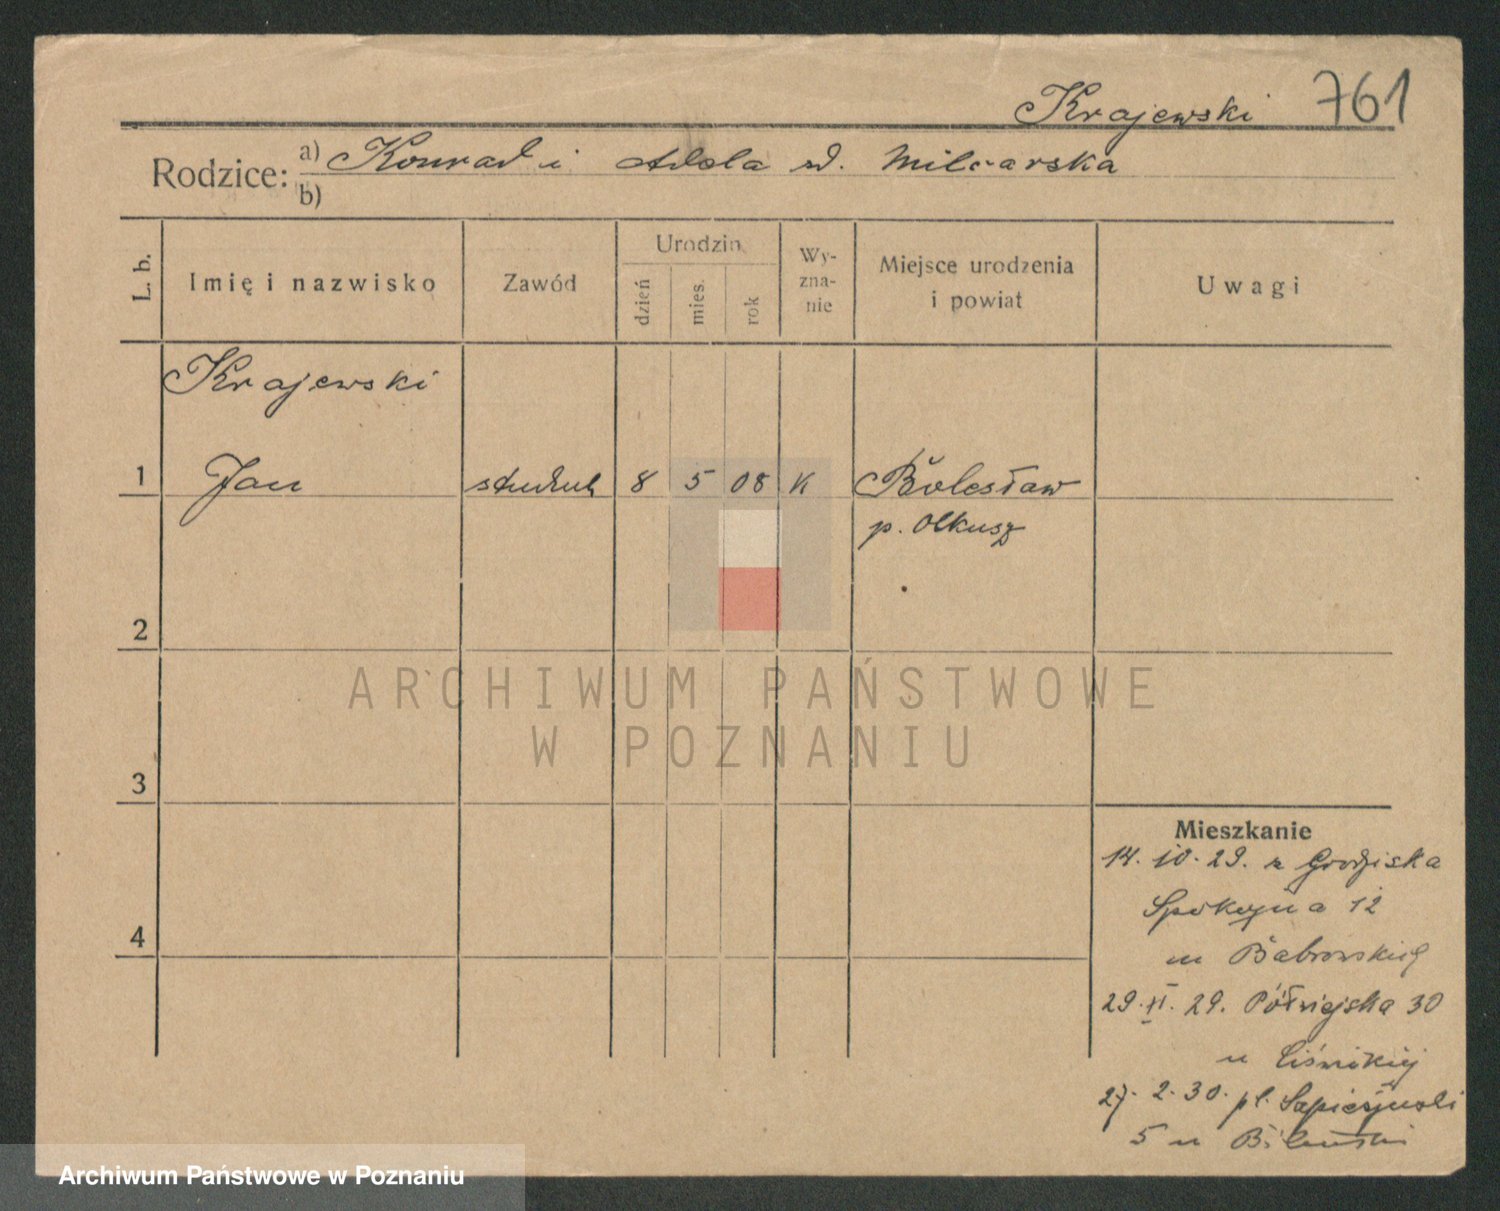 Krajewski 761
Rodzice: a) Konrad i Adela d. Milcarska
b)
L. b. Imię i nazwisko Zawód Urodzin dzień mies. rok Wyznanie Miejsce urodzenia i powiat Uwagi
Krajewski
1 Jan student 8 5 08 K Bolesław
p. Olkusz
2
ARCHIWUM PAŃSTWOWE
W POZNANIU
3
Mieszkanie
14. 10. 29. z Grodziska
Spokojna 12
4
u
29. XI. 29. Półwiejska 30
u
27. 2. 30. pl. Sapieżyński
5 u
Archiwum Państwowe w Poznaniu